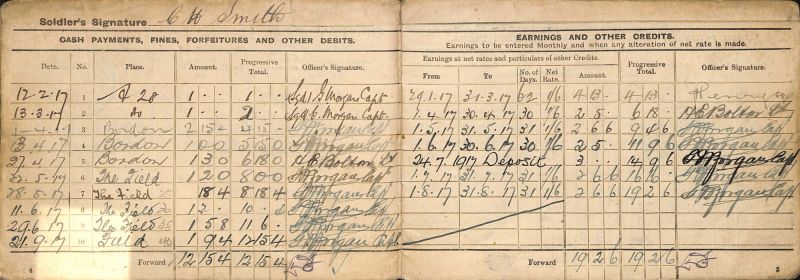 Soldier's Signature C H Smith
CASH PAYMENTS, FINES, FORFEITURES AND OTHER DEBITS.
Date. No. Place. Amount. Progressive Total. Officer's Signature.
12-2-17 1 1 . . 1 . . Morgan Capt
13-3-17 2 do 1 . . 2 Morgan Capt
3 Bordon 2 15 4 4 15
4 Bordon 1 0 0 5 15 0
27.4.17 5 Bordon 1 3 0 6 18 0 H E Bolton Lt
22.5.17 6 The Field 1 2 0 8 0 0 Morgan Capt
28.5.17 7 The Field 18 4 8 18 4 Morgan Capt
11.6.17 8 The Field 30 12 . 10 . Morgan Capt
29.6.17 9 The Field 35 1 5 8 11 6 . Morgan Capt
21.9.17 10 Field 40 1 9 4 12 15 4 Morgan Capt
Forward 12 15 4 12 15 4
4
EARNINGS AND OTHER CREDITS.
Earnings to be entered Monthly and when any alteration of net rate is made.
Earnings at net rates and particulars of other Credits. Progressive Total. Officer's Signature.
From To No. of Days. Net Rate. Amount.
29.1.17 31.3.17 1/6 4 13 . 4 13 .
1.4.17 30.4.17 30 1/6 2 5 . 6 18 . H E Bolton Lt
1.5.17 31.5.17 31 1/6 2 6 6 9 4 6 Morgan Capt
1.6.17 30.6.17 30 1/6 2 5 . 11 9 6 Morgan Capt
24.7.1917 Deposit 3 . . 14 9 6 Morgan Capt
1.7.17 31.7.17 31 1/6 2 6 6 16 16 . Morgan Capt
1.8.17 31.8.17 31 1/6 2 6 6 19 2 6 Morgan Capt
Forward 19 2 6 19 2 6
5